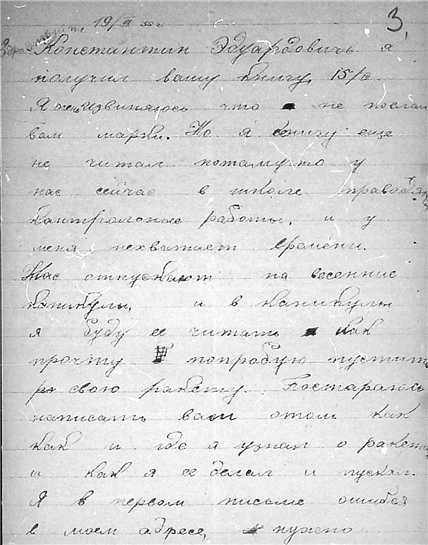 19/III 35 г.
3.
Здравствуйте
Константин Эдуардовичь я
получил вашу книгу. 15/III.
Я очень извиняюсь что не послал
вам марки. Но я книгу еще
не читал потамушто у
нас сейчас в школе праводят
кантрольные работы, и у
меня нехватает времени.
Нас отпускают на весенние
каникулы, и в каникулы
я буду ее читать как
прочту попробую пустить
свою ракету. Постараюсь
написать вам отом как
как и где я узнал о ракетах
и как я ее делал и пускал.
Я в первом письме ошибся
в моем адресе, нужно